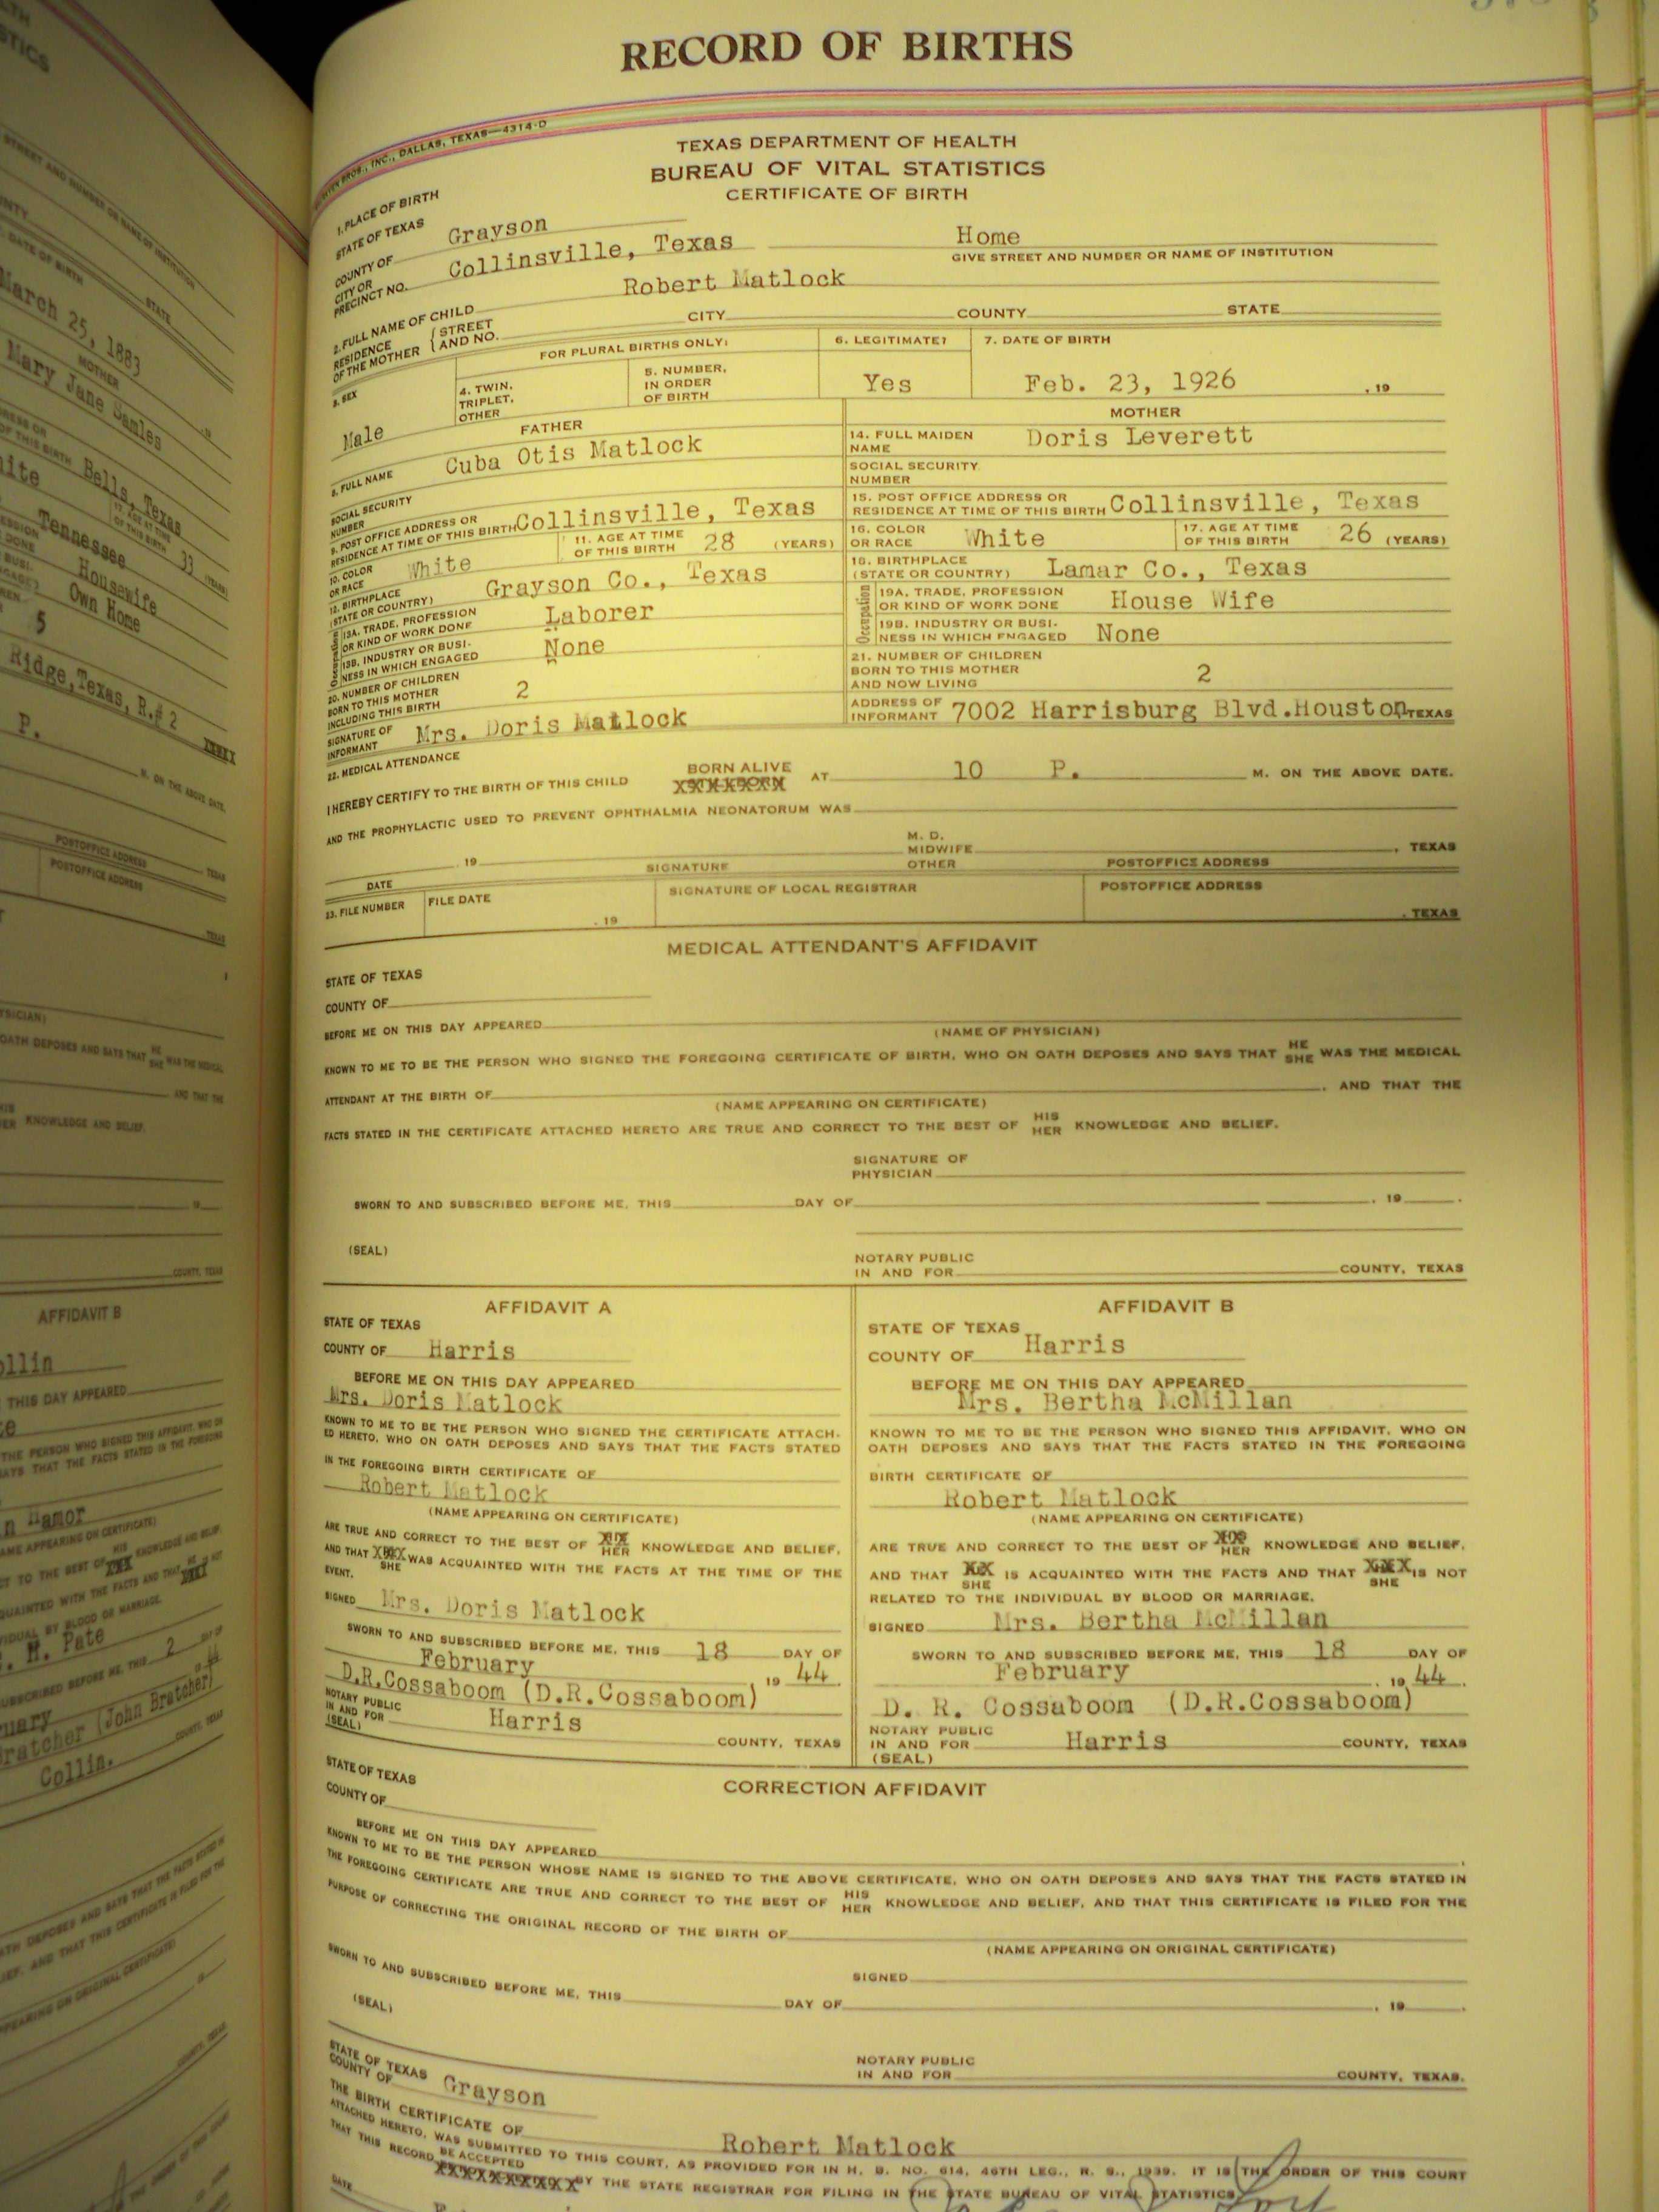 RECORD OF BIRTHS
INC., DALLAS, TEXAS—4314-D
TEXAS DEPARTMENT OF HEALTH
BUREAU OF VITAL STATISTICS
CERTIFICATE OF BIRTH
1. PLACE OF BIRTH
STATE OF TEXAS
COUNTY OF Grayson
CITY OR PRECINCT NO. Collinsville, Texas Home
GIVE STREET AND NUMBER OR NAME OF INSTITUTION
2. FULL NAME OF CHILD Robert Matlock
RESIDENCE OF THE MOTHER { STREET AND NO. CITY COUNTY STATE
3. SEX Male
FOR PLURAL BIRTHS ONLY:
4. TWIN, TRIPLET, OTHER
5. NUMBER, IN ORDER OF BIRTH
6. LEGITIMATE? Yes
7. DATE OF BIRTH Feb. 23, 1926 , 19
FATHER
8. FULL NAME Cuba Otis Matlock
SOCIAL SECURITY NUMBER
9. POST OFFICE ADDRESS OR RESIDENCE AT TIME OF THIS BIRTH Collinsville, Texas
10. COLOR OR RACE White 11. AGE AT TIME OF THIS BIRTH 28 (YEARS)
12. BIRTHPLACE (STATE OR COUNTRY) Grayson Co., Texas
13A. TRADE, PROFESSION OR KIND OF WORK DONE Laborer
13B. INDUSTRY OR BUSINESS IN WHICH ENGAGED None
20. NUMBER OF CHILDREN BORN TO THIS MOTHER INCLUDING THIS BIRTH 2
SIGNATURE OF INFORMANT Mrs. Doris Matlock
MOTHER
14. FULL MAIDEN NAME Doris Leverett
SOCIAL SECURITY NUMBER
15. POST OFFICE ADDRESS OR RESIDENCE AT TIME OF THIS BIRTH Collinsville, Texas
16. COLOR OR RACE White 17. AGE AT TIME OF THIS BIRTH 26 (YEARS)
18. BIRTHPLACE (STATE OR COUNTRY) Lamar Co., Texas
Occupation
19A. TRADE, PROFESSION OR KIND OF WORK DONE House Wife
19B. INDUSTRY OR BUSINESS IN WHICH ENGAGED None
21. NUMBER OF CHILDREN BORN TO THIS MOTHER AND NOW LIVING 2
ADDRESS OF INFORMANT 7002 Harrisburg Blvd.Houston TEXAS
22. MEDICAL ATTENDANCE
I HEREBY CERTIFY TO THE BIRTH OF THIS CHILD BORN ALIVE AT 10 P. M. ON THE ABOVE DATE.
AND THE PROPHYLACTIC USED TO PREVENT OPHTHALMIA NEONATORUM WAS
DATE 19 SIGNATURE M. D. MIDWIFE OTHER POSTOFFICE ADDRESS , TEXAS
23. FILE NUMBER FILE DATE , 19 SIGNATURE OF LOCAL REGISTRAR POSTOFFICE ADDRESS , TEXAS
MEDICAL ATTENDANT'S AFFIDAVIT
STATE OF TEXAS
COUNTY OF
BEFORE ME ON THIS DAY APPEARED
(NAME OF PHYSICIAN)
KNOWN TO ME TO BE THE PERSON WHO SIGNED THE FOREGOING CERTIFICATE OF BIRTH, WHO ON OATH DEPOSES AND SAYS THAT HE SHE WAS THE MEDICAL
ATTENDANT AT THE BIRTH OF , AND THAT THE
(NAME APPEARING ON CERTIFICATE)
FACTS STATED IN THE CERTIFICATE ATTACHED HERETO ARE TRUE AND CORRECT TO THE BEST OF HIS HER KNOWLEDGE AND BELIEF.
SIGNATURE OF PHYSICIAN
SWORN TO AND SUBSCRIBED BEFORE ME, THIS DAY OF , 19 .
(SEAL)
NOTARY PUBLIC IN AND FOR COUNTY, TEXAS
AFFIDAVIT A
STATE OF TEXAS
COUNTY OF Harris
BEFORE ME ON THIS DAY APPEARED
Mrs. Doris Matlock
KNOWN TO ME TO BE THE PERSON WHO SIGNED THE CERTIFICATE ATTACH-
ED HERETO, WHO ON OATH DEPOSES AND SAYS THAT THE FACTS STATED
IN THE FOREGOING BIRTH CERTIFICATE OF
Robert Matlock
(NAME APPEARING ON CERTIFICATE)
ARE TRUE AND CORRECT TO THE BEST OF HER KNOWLEDGE AND BELIEF,
AND THAT SHE WAS ACQUAINTED WITH THE FACTS AT THE TIME OF THE
EVENT.
SIGNED Mrs. Doris Matlock
SWORN TO AND SUBSCRIBED BEFORE ME, THIS 18 DAY OF
February 19 44.
D.R.Cossaboom (D.R.Cossaboom)
NOTARY PUBLIC IN AND FOR Harris COUNTY, TEXAS
(SEAL)
AFFIDAVIT B
STATE OF TEXAS
COUNTY OF Harris
BEFORE ME ON THIS DAY APPEARED
Mrs. Bertha McMillan
KNOWN TO ME TO BE THE PERSON WHO SIGNED THIS AFFIDAVIT, WHO ON
OATH DEPOSES AND SAYS THAT THE FACTS STATED IN THE FOREGOING
BIRTH CERTIFICATE OF
Robert Matlock
(NAME APPEARING ON CERTIFICATE)
ARE TRUE AND CORRECT TO THE BEST OF HER KNOWLEDGE AND BELIEF,
AND THAT SHE IS ACQUAINTED WITH THE FACTS AND THAT SHE IS NOT
RELATED TO THE INDIVIDUAL BY BLOOD OR MARRIAGE.
SIGNED Mrs. Bertha McMillan
SWORN TO AND SUBSCRIBED BEFORE ME, THIS 18 DAY OF
February , 19 44.
D. R. Cossaboom (D.R.Cossaboom)
NOTARY PUBLIC IN AND FOR Harris COUNTY, TEXAS
(SEAL)
CORRECTION AFFIDAVIT
STATE OF TEXAS
COUNTY OF
BEFORE ME ON THIS DAY APPEARED
KNOWN TO ME TO BE THE PERSON WHOSE NAME IS SIGNED TO THE ABOVE CERTIFICATE, WHO ON OATH DEPOSES AND SAYS THAT THE FACTS STATED IN
THE FOREGOING CERTIFICATE ARE TRUE AND CORRECT TO THE BEST OF HIS HER KNOWLEDGE AND BELIEF, AND THAT THIS CERTIFICATE IS FILED FOR THE
PURPOSE OF CORRECTING THE ORIGINAL RECORD OF THE BIRTH OF
(NAME APPEARING ON ORIGINAL CERTIFICATE)
SIGNED
SWORN TO AND SUBSCRIBED BEFORE ME, THIS DAY OF , 19 .
(SEAL)
NOTARY PUBLIC IN AND FOR COUNTY, TEXAS.
STATE OF TEXAS
COUNTY OF Grayson
THE BIRTH CERTIFICATE OF Robert Matlock
ATTACHED HERETO, WAS SUBMITTED TO THIS COURT, AS PROVIDED FOR IN H. B. NO. 614, 46TH LEG., R. S., 1939. IT IS THE ORDER OF THIS COURT
THAT THIS RECORD BE ACCEPTED BY THE STATE REGISTRAR FOR FILING IN THE STATE BUREAU OF VITAL STATISTICS
DATE
March 25, 1883
MOTHER
Mary Jane Samles
Bells, Texas
33
Tennessee
Housewife
Own Home
5
Ridge, Texas, R.# 2
P.
M. ON THE ABOVE DATE.
POSTOFFICE ADDRESS
POSTOFFICE ADDRESS
KNOWLEDGE AND BELIEF.
COUNTY, TEXAS
AFFIDAVIT B
THIS DAY APPEARED
Pate
2
Bratcher (John Bratcher)
Collin.